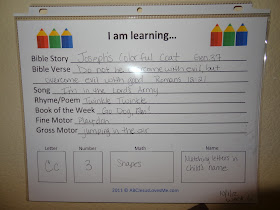 I am learning...
Bible Story Joseph's Colorful Coat Gen. 37
Bible Verse Do not be overcome with evil, but
overcome evil with good Romans 12:21
Song I'm in the Lord's Army
Rhyme/Poem Twinkle Twinkle
Book of the Week Go Dog, Go!
Fine Motor Playdoh
Gross Motor jumping in the air
Letter Number Math Name
Cc 3 Shapes Matching letters in
child's name
2011 © ABCJesusLovesMe.com